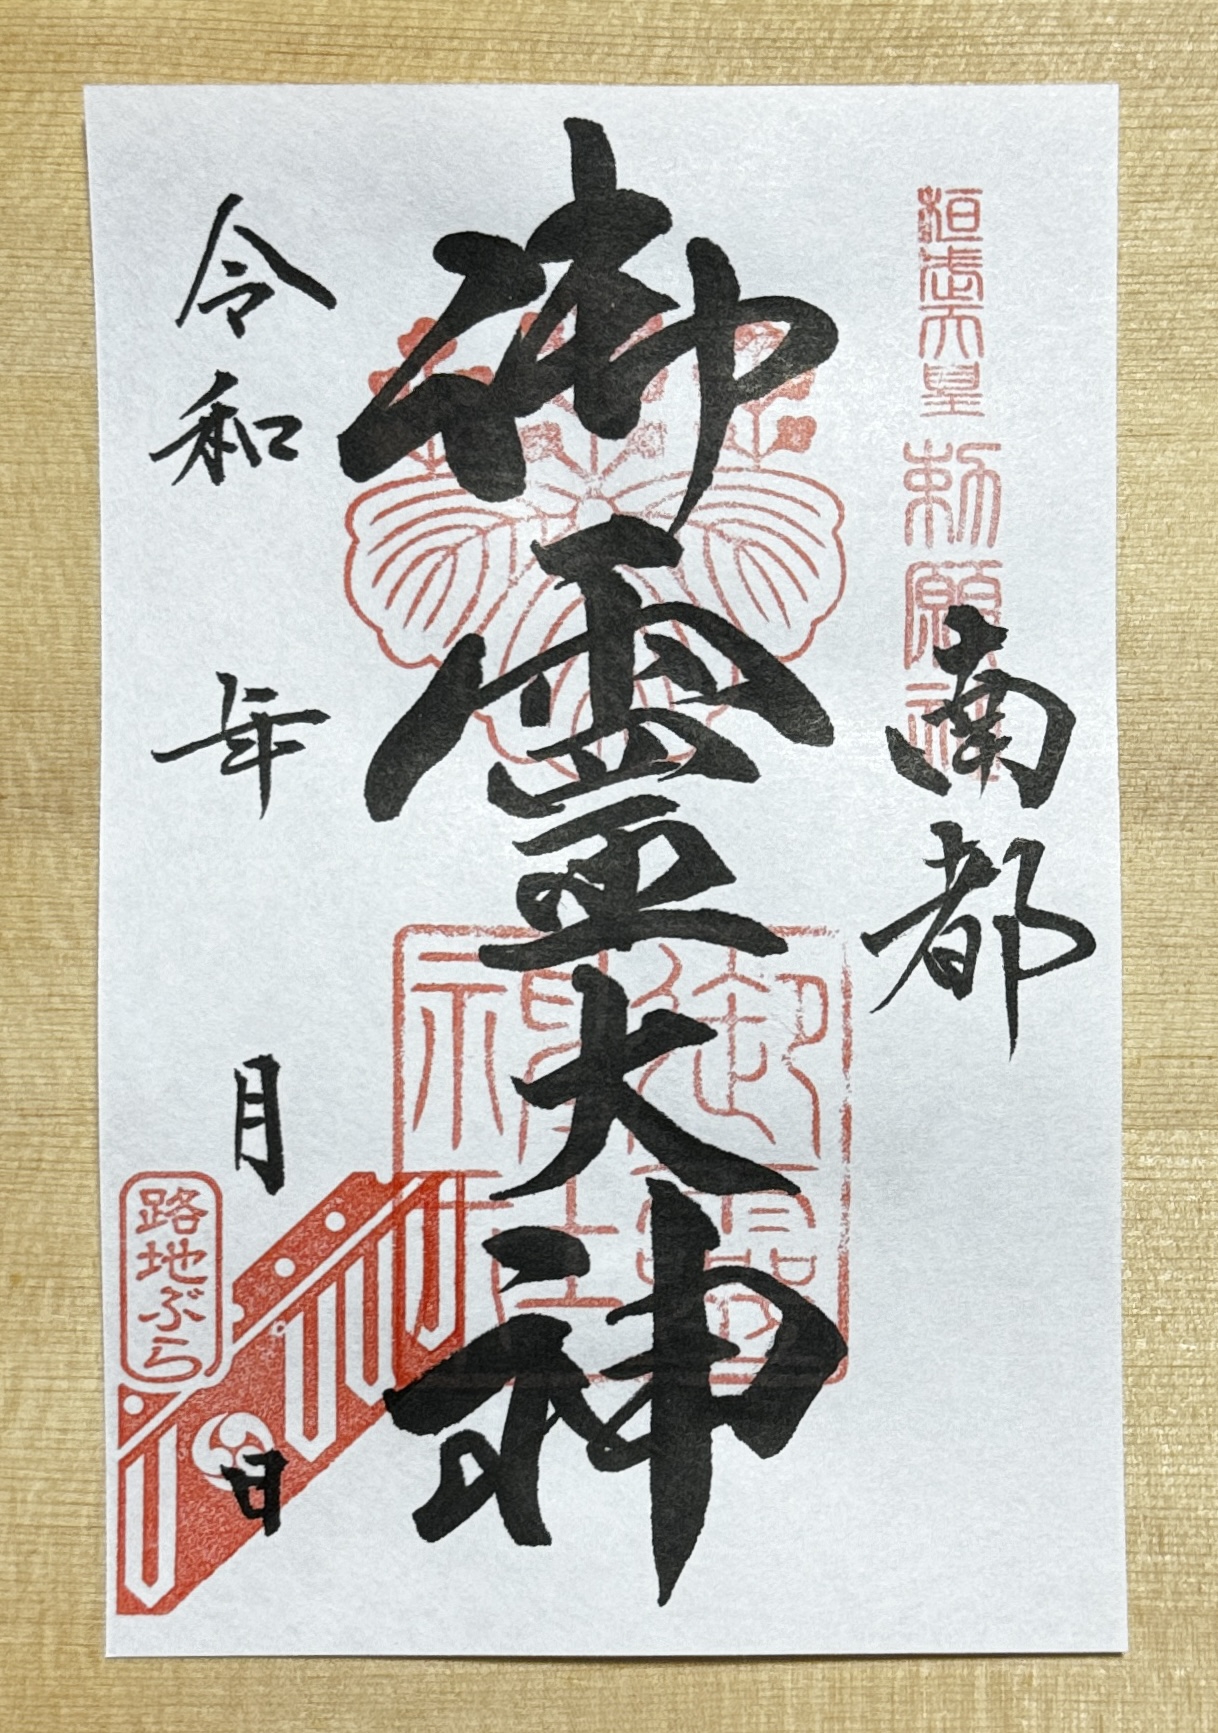 桓武天皇勅願社
南都
御霊大神
御霊神社
令和 年 月 日
路地ぶら